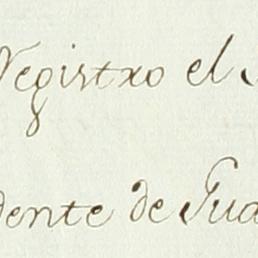 Registro el
dente de Gua